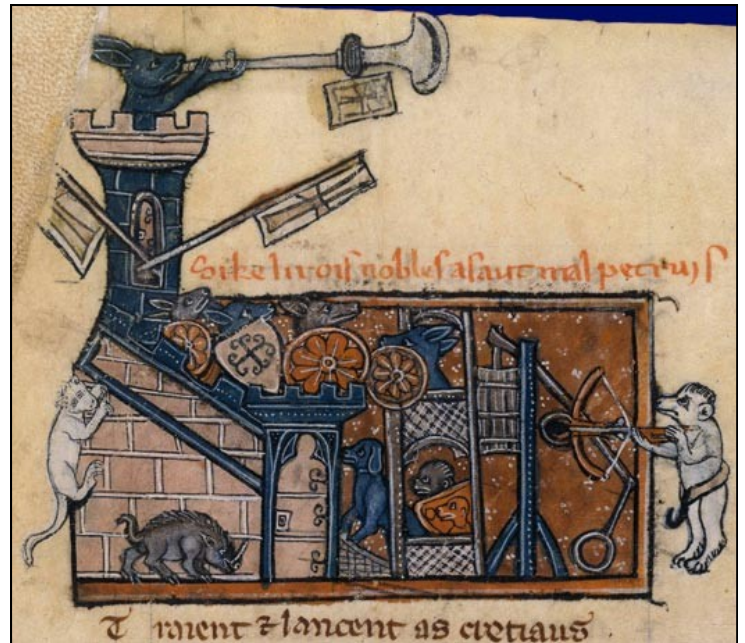 Si ke li rois nobles asaut malpetruis
T raient ⁊ lancent as cretiaus